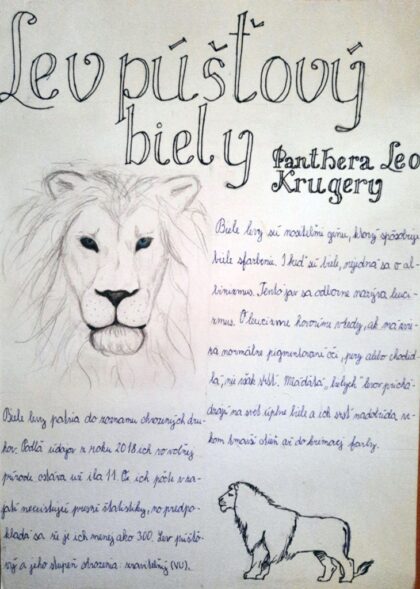 Lev púšťový
biely
Panthera Leo
Krugery
Biele levy sú nositeľmi génu, ktorý spôsobuje
biele sfarbenie. I keď sú biele, nejedná sa o al-
binizmus. Tento jav sa odborne nazýva leuci-
zmus. O leucizme hovoríme vtedy, ak má zvie
ra normálne pigmentované oči, pery alebo chodid-
lá, nie však srsť. Mláďatá „bielych" levov prichá-
dzajú na svet úplne biele a ich srsť nadobúda ve-
kom tmavší odtieň až do krémovej farby.
Biele levy patria do zoznamu ohrozených dru-
hov. Podľa údajov z roku 2018 ich vo voľnej
prírode ostáva už iba 11. Čo ich počtu v za-
jatí neexistujú presné štatistiky, no predpo-
kladá sa že je ich menej ako 300. Lev púšťo-
vý a jeho stupeň ohrozenia: zraniteľný (VU).